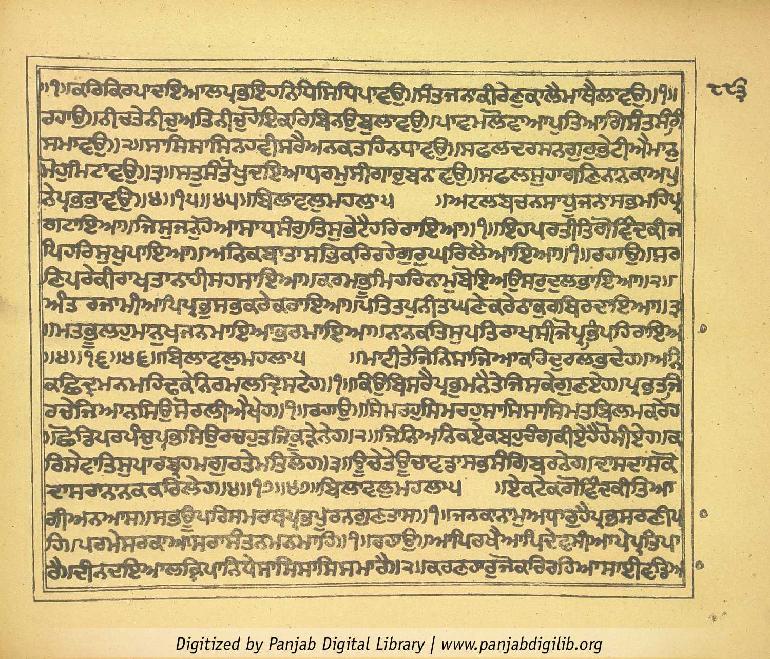 ॥੧॥ਕਰਿਕਿਰਪਾਦਇਆਲਪ੍ਰਭਇਹਨਿਧਿਸਿਧਿਪਾਵਉ॥ਸੰਤਜਨਾਕੀਰੇਣੁਕਾਲੈਮਾਥੈਲਾਵਉ॥੧॥
ਰਹਾਉ॥ਨੀਚਤੇਨੀਚੁਅਤਿਨੀਚੁਹੋਇਕਰਿਬਿਨਉਬੁਲਾਵਉ॥ਪਾਵਮਲੋਵਾਆਪੁਤਿਆਗਿਸੰਤਸੰਗਿ
ਸਮਾਵਉ॥੨॥ਸਾਸਿਸਾਸਿਨਹਵੀਸਰੈਅਨਕਤਹਿਨਧਾਵਉ॥ਸਫਲਦਰਸਨਗੁਰੁਭੇਟੀਐਮਾਨੁ
ਮੋਹੁਮਿਟਾਵਉ॥੩॥ਸਤੁਸੰਤੋਖੁਦਇਆਧਰਮੁਸੀਗਾਰੁਬਨਾਵਉ॥ਸਫਲਸੁਹਾਗਣਿਨਾਨਕਾਅਪੁ
ਨੇਪ੍ਰਭਭਾਵਉ॥੪॥੧੫॥੪੫॥ਬਿਲਾਵਲੁਮਹਲਾ੫ ॥ਅਟਲਬਚਨਸਾਧੂਜਨਾਸਭਮਹਿਪ੍ਰ
ਗਟਾਇਆ॥ਜਿਸੁਜਨਹੋਆਸਾਧਸੰਗੁਤਿਸੁਭੇਟੈਹਰਿਰਾਇਆ॥੧॥ਇਹਪਰਤੀਤਿਗੋਵਿੰਦਕੀਜ
ਪਿਹਰਿਸੁਖੁਪਾਇਆ॥ਅਨਿਕਬਾਤਾਸਭਿਕਰਿਰਹੇਗੁਰੁਘਰਿਲੈਆਇਆ॥੧॥ਰਹਾਉ॥ਸਰ
ਣਿਪਰੇਕੀਰਾਖਤਾਨਾਹੀਸਹਸਾਇਆ॥ਕਰਮਭੂਮਿਹਰਿਨਾਮੁਬੋਇਅਉਸਰੁਦੁਲਭਾਇਆ॥੨॥
ਅੰਤਰਜਾਮੀਆਪਿਪ੍ਰਭੁਸਭਕਰੇਕਰਾਇਆ॥ਪਤਿਤਪੁਨੀਤਘਣੇਕਰੇਠਾਕੁਰਬਿਰਦਾਇਆ॥੩
॥ਮਤਭੂਲਹੁਮਾਨੁਖਜਨਮਾਇਆਭਰਮਾਇਆ॥ਨਾਨਕਤਿਸੁਪਤਿਰਾਖਸੀਜੋਪ੍ਰਭਿਪਹਿਰਾਇਆ
॥੪॥੧੬॥੪੬॥ਬਿਲਾਵਲੁਮਹਲਾ੫ ॥ਮਾਟੀਤੇਜਿਨਿਸਾਜਿਆਕਰਿਦੁਰਲਭਦੇਹ॥ਅਨਿ
ਕਛਿਦ੍ਰਮਨਮਹਿਢਕੇਨਿਰਮਲਦ੍ਰਿਸਟੇਹ॥੧॥ਕਿਉਬਿਸਰੈਪ੍ਰਭੁਮਨੈਤੇਜਿਸਕੇਗੁਣਏਹ॥ਪ੍ਰਭਤਜਿ
ਰਚੇਜਿਆਨਸਿਉਸੋਰਲੀਐਖੇਹ॥੧॥ਰਹਾਉ॥ਸਿਮਰਹੁਸਿਮਰਹੁਸਾਸਿਸਾਸਿਮਤਬਿਲਮਕਰੇਹ
॥ਛੋਡਿਪਰਪੰਚੁਪ੍ਰਭਸਿਉਰਚਹੁਤਜਿਕੂੜੇਨੇਹ॥੨॥ਜਿਨਿਅਨਿਕਏਕਬਹੁਰੰਗਕੀਏਹੈਹੋਸੀਏਹ॥ਕ
ਰਿਸੇਵਾਤਿਸੁਪਾਰਬ੍ਰਹਮਗੁਰਤੇਮਤਿਲੇਹ॥੩॥ਊਚੇਤੇਊਚਾਵਡਾਸਭਸੰਗਿਬਰਨੇਹ॥ਦਾਸਦਾਸਕੋ
ਦਾਸਰਾਨਾਨਕਕਰਿਲੇਹ॥੪॥੧੭॥੪੭॥ਬਿਲਾਵਲੁਮਹਲਾ੫ ॥ਏਕਟੇਕਗੋਵਿੰਦਕੀਤਿਆ
ਗੀਅਨਆਸ॥ਸਭਊਪਰਿਸਮਰਥਪ੍ਰਭਪੂਰਨਗੁਣਤਾਸ॥੧॥ਜਨਕਾਨਾਮੁਅਧਾਰੁਹੈਪ੍ਰਭਸਰਣੀਪਾ
ਹਿ॥ਪਰਮੇਸਰਕਾਆਸਰਾਸੰਤਨਮਨਮਾਹਿ॥੧॥ਰਹਾਉ॥ਆਪਿਰਖੈਆਪਿਦੇਵਸੀਆਪੇਪ੍ਰਤਿਪਾ
ਰੈ॥ਦੀਨਦਇਆਲਕ੍ਰਿਪਾਨਿਧੇਸਾਸਿਸਾਸਿਸਮਾਰੈ॥੨॥ਕਰਣਹਾਰੁਜੋਕਰਿਰਹਿਆਸਾਈਵਡਿਆ
Digitized by Panjab Digital Library | www.panjabdigilib.org